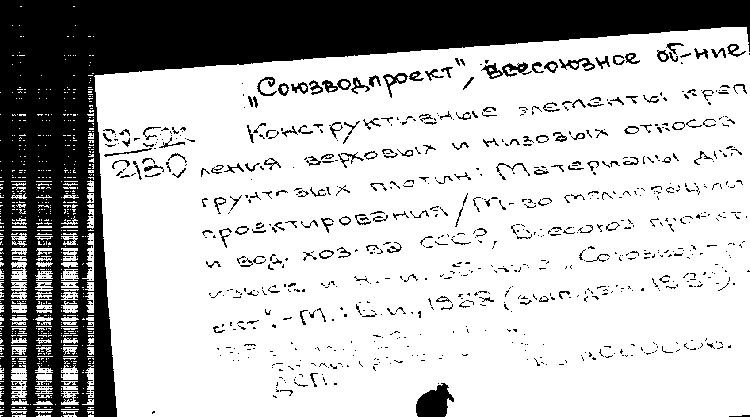 „Союзводпроект", Всесоюзное об-ние
2130
Конструктивные элементы креп
ления верховых и низовых откосов
грунтовых плотин: Материалы для
проектирования / М-во мелиорации
и вод. хоз-ва СССР, Всесоюз проект.
изыск. и н.-и. об-ние „Союзвод-про
ект". - М.: Б.и., 1988 (вып.дан. 1989).
ДСП.